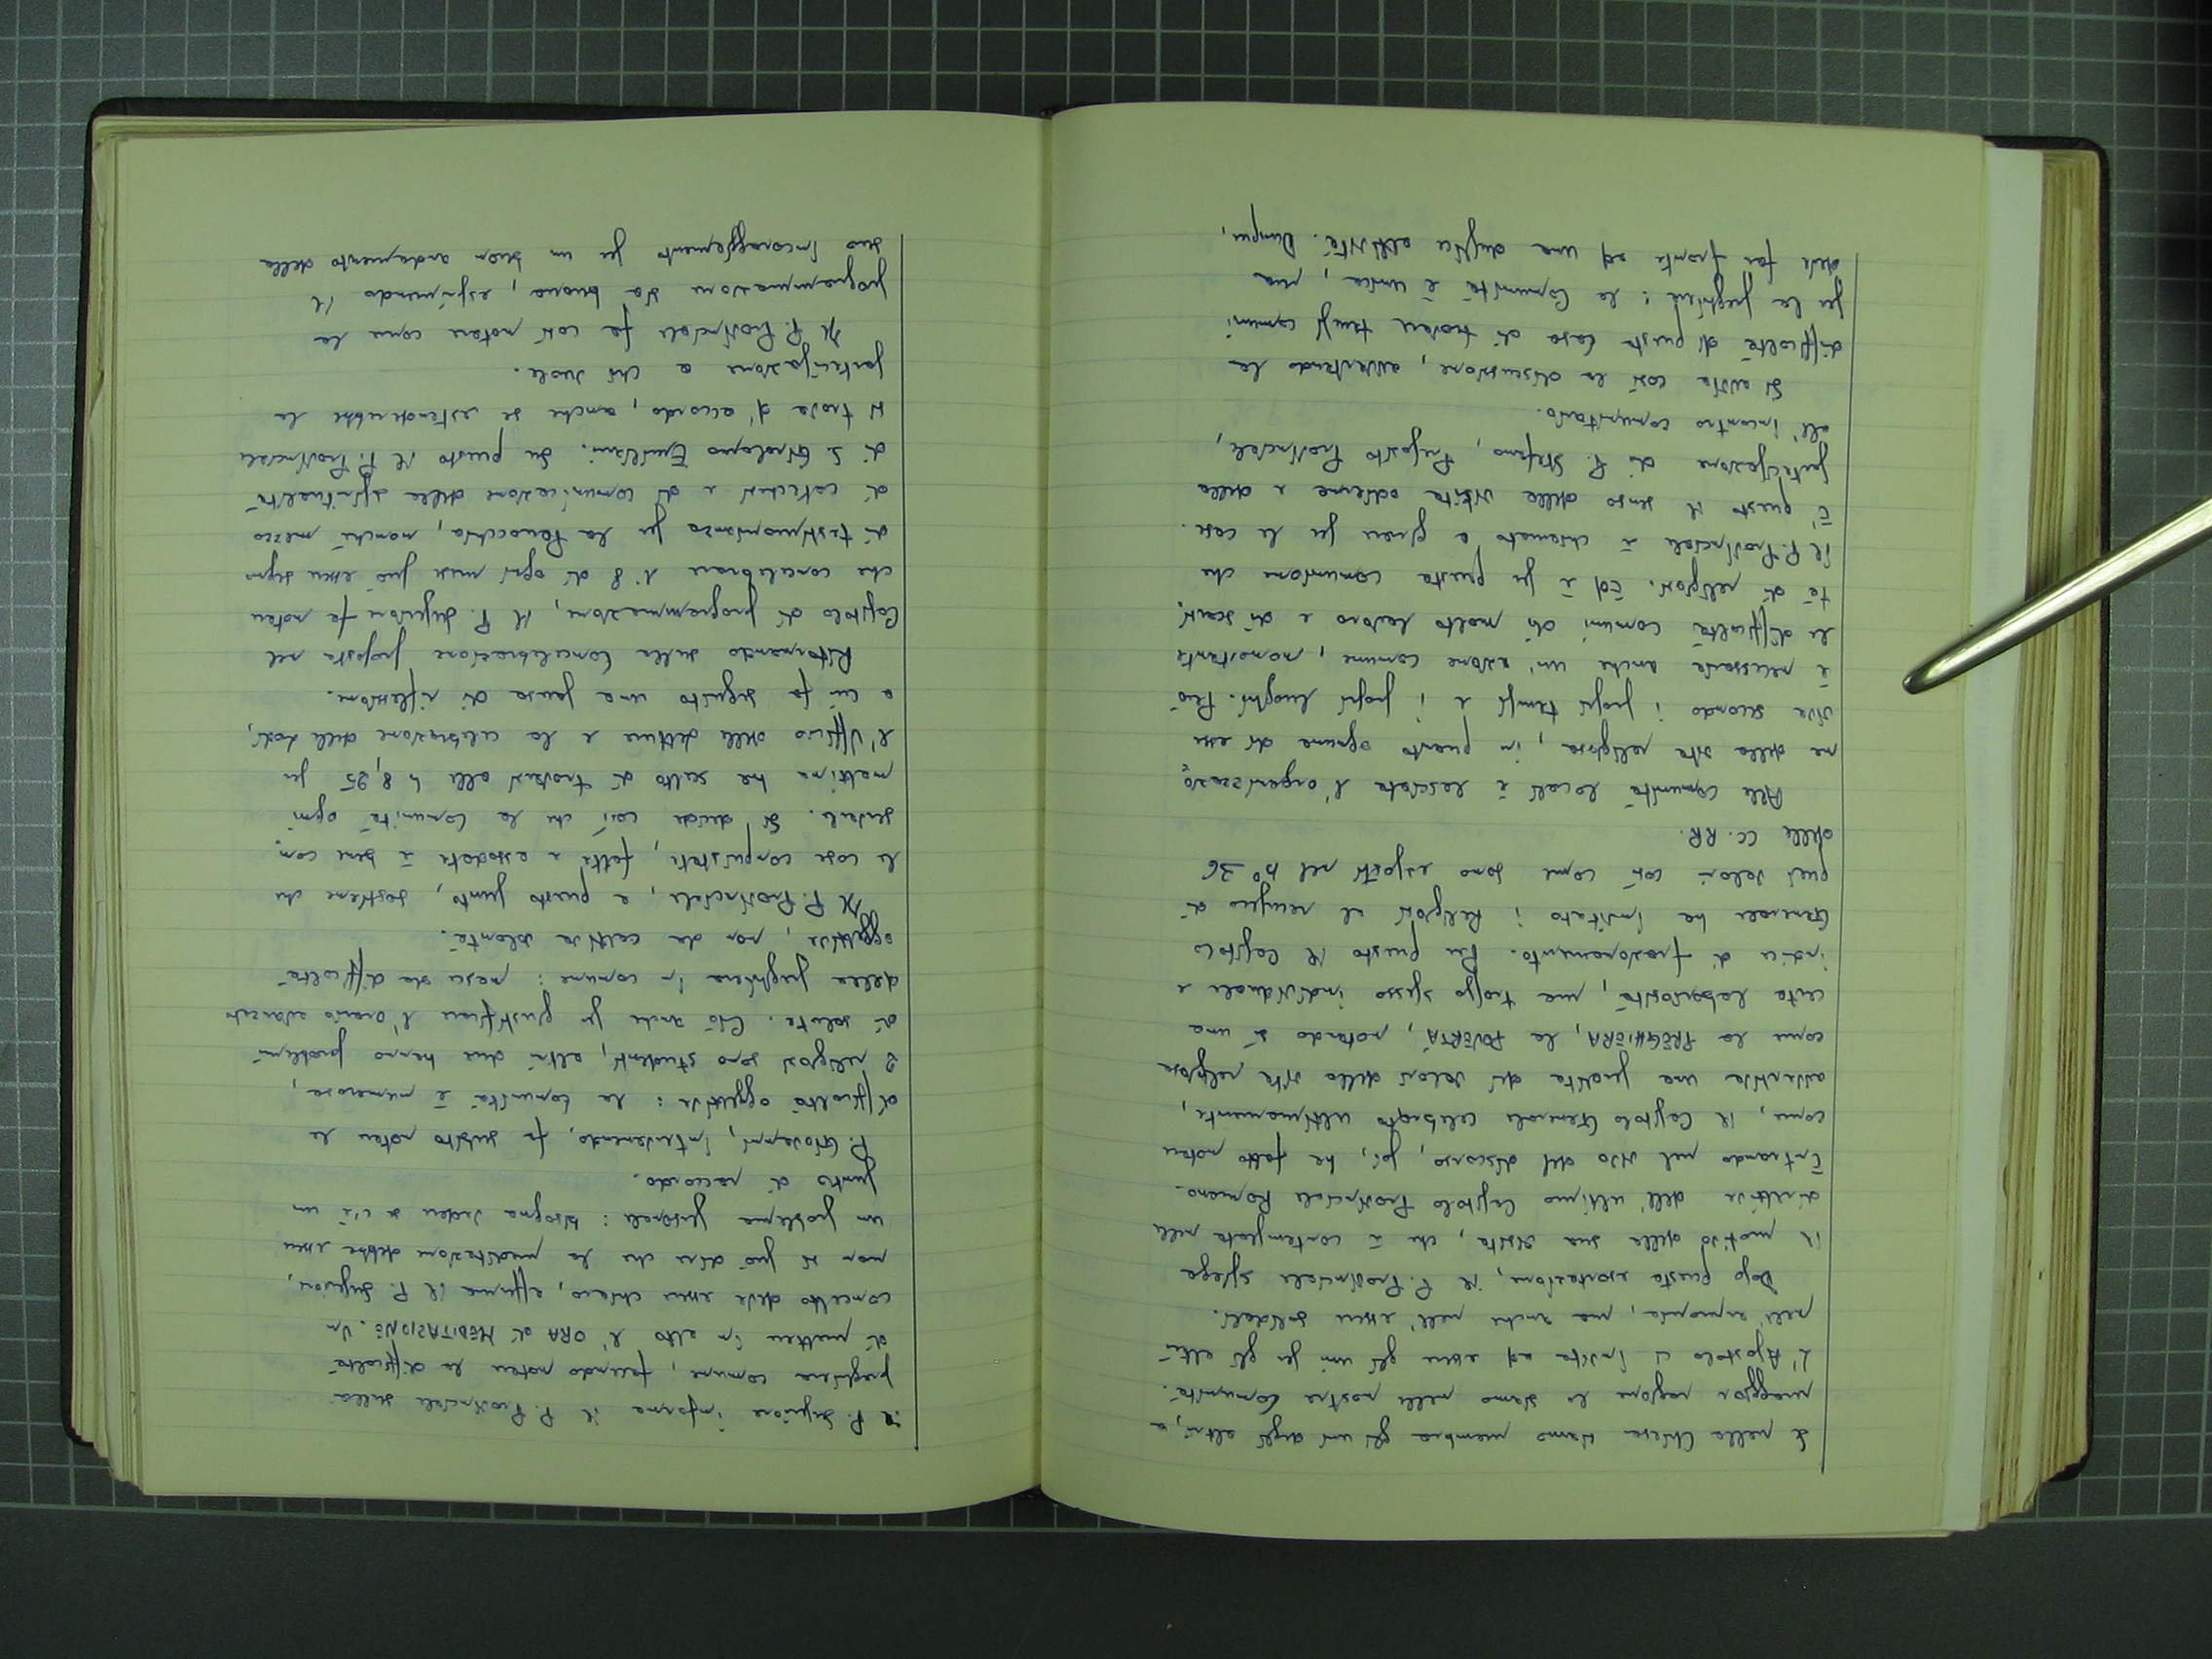 E nella Chiesa siamo membra gli uni degli altri, a
maggior ragione lo siamo nelle nostre Comunità.
L'Apostolo ci invita ad essere gli uni per gli altri
nell'armonia, ma anche nell'essere solidali.
Dopo questa esortazione, il P. Provinciale spiega
il motivo della sua visita, che è contemplata nelle
direttive dell'ultimo Capitolo Provinciale Romano.
Entrando nel vivo del discorso, poi, ha fatto notare
come, il Capitolo Generale celebrato ultimamente,
avvertiva una perdita dei valori della vita religiosa
come la PREGHIERA, la POVERTÀ, notando sì una
certa laboriosità, ma troppo spesso individuale e
indice di frazionamento. Per questo il Capitolo
Generale ha invitato i Religiosi al recupero di
quei valori così come sono esposti nel n° 36
delle CC. RR.
Alle comunità locali è lasciata l'organizzazio
ne della vita religiosa, in quanto ognuna di esse
vive secondo i propri tempi e i propri luoghi. Però
è necessaria anche un'azione comune, nonostante
le difficoltà comuni di molto lavoro e di scarsi
tà di religiosi. Ed è per questa comunione che
il P. Provinciale è chiamato a girare per le case.
È questo il senso della visita odierna e della
partecipazione di P. Stefano, Preposito Provinciale,
all'incontro comunitario.
Si avvia così la discussione, avvertendo la
difficoltà di questa Casa di trovare tempi comuni
per la preghiera: la Comunità è unica, ma
deve far fronte ad una duplice attività. Dunque,
il P. Superiore informa il P. Provinciale sulla
preghiera comune, facendo notare la difficoltà
di mettere in atto l'ORA di MEDITAZIONE. Un
concetto deve essere chiaro, afferma il P. Superiore,
non si può dire che la meditazione debba essere
un problema personale: bisogna vedere se c'è un
punto di raccordo.
P. Giovanni, intervenendo, fa subito notare le
difficoltà oggettive: la Comunità è numerosa,
2 religiosi sono studenti, altri due hanno problemi
di salute. Ciò anche per giustificare l'orario avanzato
della preghiera in comune: nasce da difficoltà
oggettive, non da cattiva volontà.
Il P. Provinciale, a questo punto, sostiene che
le cose conquistate, fatte e assodate è bene con-
servarle. Si decide così che la Comunità ogni
mattina ha scelto di trovarsi alle h 8,25 per
l'Ufficio delle Letture e la celebrazione delle Lodi,
a cui fa seguito una pausa di riflessione.
Ritornando sulla Concelebrazione proposta nel
Capitolo di programmazione, il P. Superiore fa notare
che concelebrare l'8 di ogni mese può essere segno
di testimonianza per la Parrocchia, nonché mezzo
di catechesi e di comunicazione della spiritualità
di S. Girolamo Emiliani. Su questo il P. Provinciale
si trova d'accordo, anche se estenderebbe la
partecipazione a chi vuole.
Il P. Provinciale fa così notare come la
programmazione sia buona, esprimendo il
suo incoraggiamento per un buon andamento della